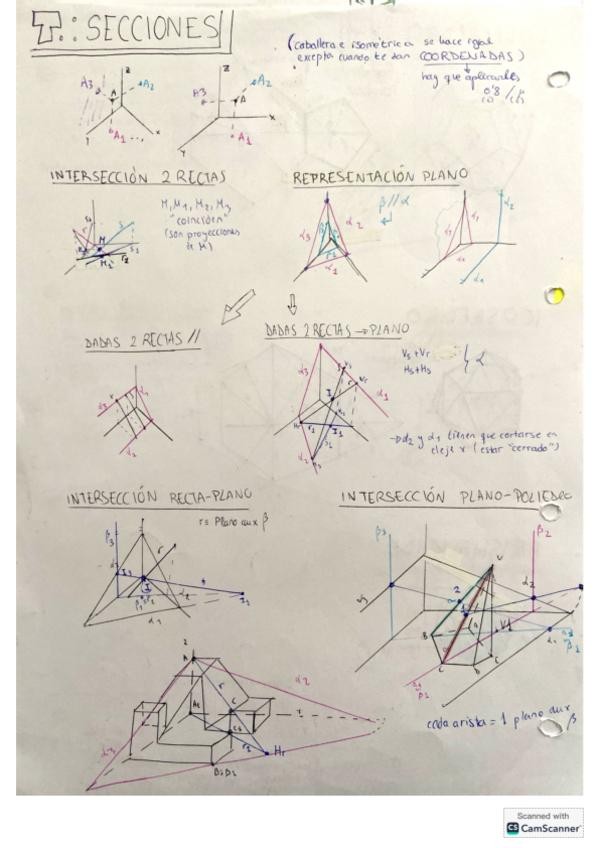 T.: SECCIONES
(caballera e isométrica se hace igual
excepto cuando te dan COORDENADAS)
hay que aplicarles
0'8
A3
A
A2
A1
Z
X
Y
A3
A
A2
A1
Z
X
Y
INTERSECCIÓN 2 RECTAS
M, M1, M2, M3
"coinciden"
(son proyecciones
de M)
REPRESENTACIÓN PLANO
β // α
α3
α2
α1
DADAS 2 RECTAS //
DADAS 2 RECTAS → PLANO
Vs + Vr
Hs + Hs
α
→ α2 y α1 tienen que cortarse en
el eje x (estar "cerrado")
INTERSECCIÓN RECTA-PLANO
r = Plano aux β
INTERSECCIÓN PLANO-POLIEDRO
β3
β2
α2
V
V1
2
1
B
C
D
cada arista = 1 plano aux
β
A
α2
α3
r
C
r1
Hr
Scanned with
CS CamScanner